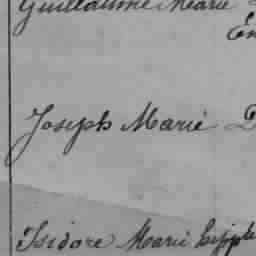 Guillaume Marie
En
Joseph Marie D
Isidore Marie